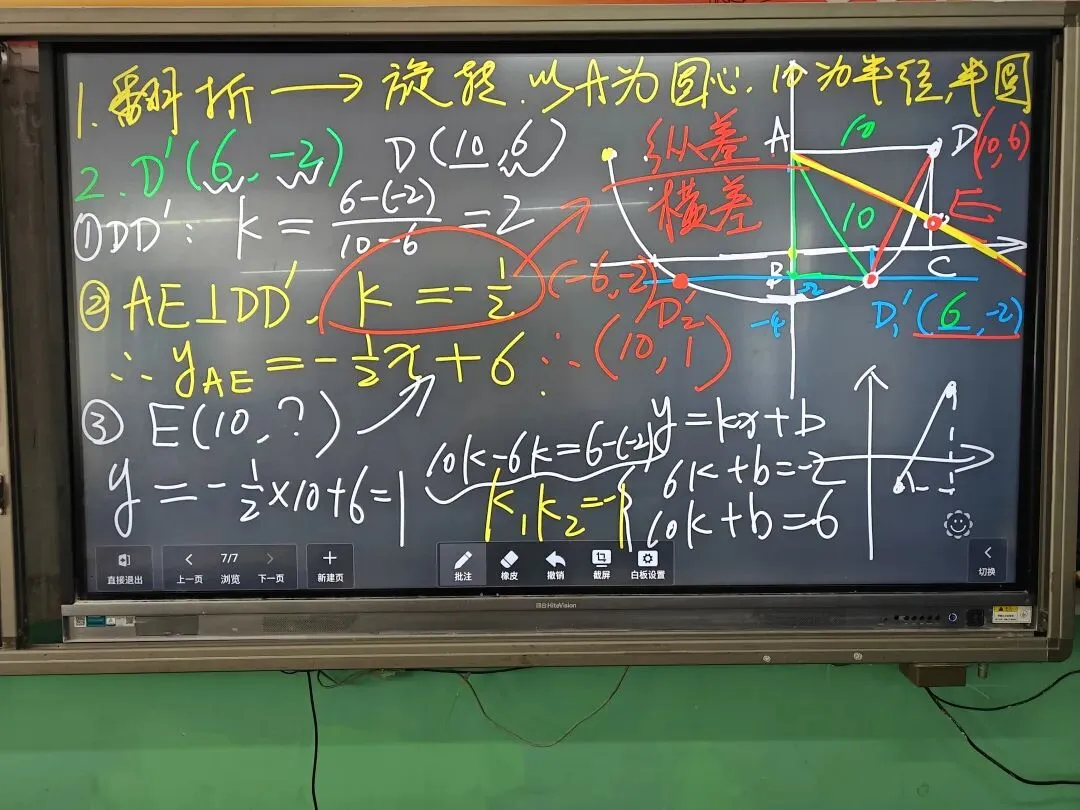 1.翻折→旋转.以A为圆心.10为半径,半圆
2.D'(6,-2) D(10,6)
①DD': k=\frac{6-(-2)}{10-6}=2
②AE⊥DD', k=-\frac{1}{2}
∴y_{AE}=-\frac{1}{2}x+6
③E(10,?)
y=-\frac{1}{2}×10+6=1
纵差
横差
∴(10,1)
10k-6k=6-(-2)
k_1k_2=-1
y=kx+b
6k+b=-2
10k+b=6
A
10
D(10,6)
10
E
B
C
-2
-4
(-6,-2)
D_2'
D_1'(6,-2)
直接退出
上一页
7/7
浏览
下一页
新建页
批注
橡皮
撤销
截屏
白板设置
切换
HiteVision